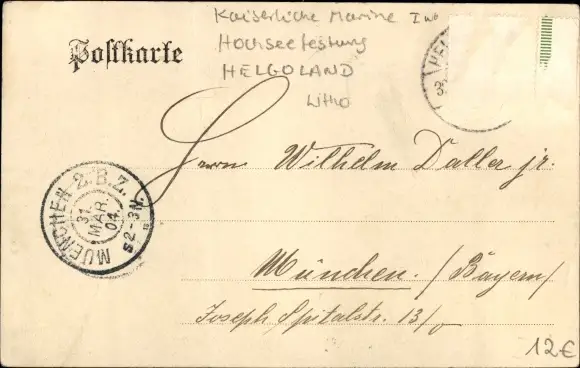 Kaiserliche Marine
Hochseefestung
HELGOLAND
Litho
Postkarte
HE
3
MUENCHEN 2.B.Z.
31.
MAR.
04.
S2-3N.
Herrn Wilhelm Daller jr.
München. / Bayern/
Joseph Spitalstr. 13/0
12€